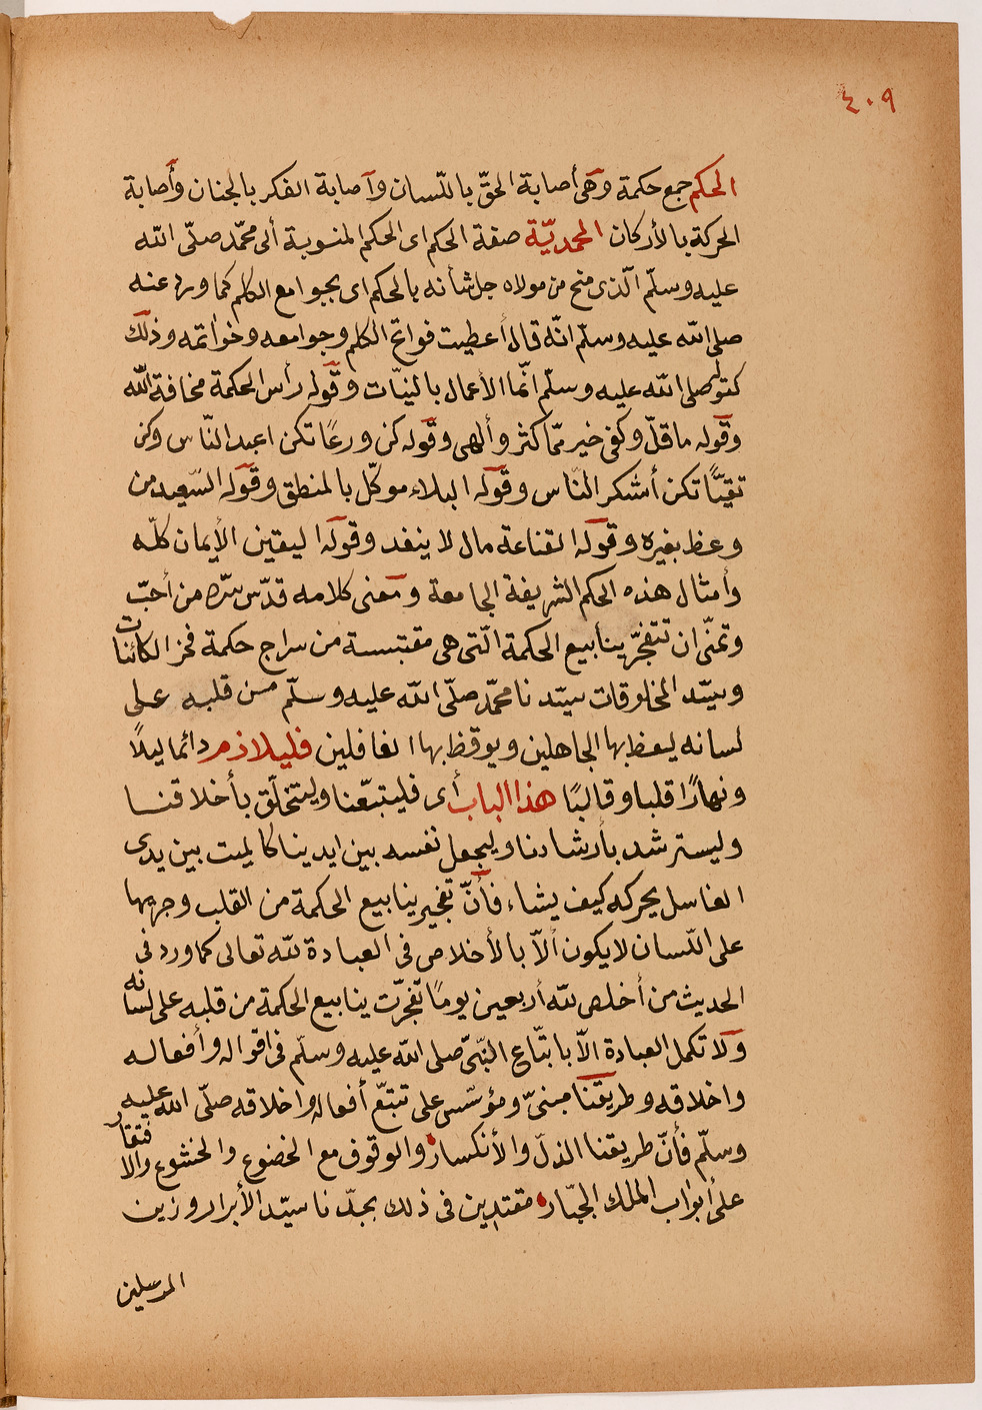 ٤٠٩
الحكم جمع حكمة وهى أصابة الحقّ باللّسان وآصابة الفكر بالجنان وأصابة
الحركة بالأركان المحمديّة صفة الحكم اى الحكم المنسوبة ألى محمّد صلّى اللّه
عليه وسلّم الّذى منح من مولاه جل شأنه بالحكم اى بجوامع الكلم كما ورد عنه
صلى اللّه عليه وسلّم انّه قال أعطيت فواتح الكلم وجوامعه وخواتمه وذلك
كقوله صلى اللّه عليه وسلّم انّما الأعمال بالنيّات وقوله رأس الحكمة مخافة اللّه
وقوله ما قلّ وكفى خير ممّا كثر وألهى وقوله كن ورعًا تكن اعبد النّاس وكن
تقيًّا تكن أشكر النّاس وقوله البلاء موكّل بالمنطق وقوله السّعيد من
وعظ بغيره وقوله القناعة مال لا ينفد وقوله اليقين الأيمان كلّه
وأمثال هذه الحكم الشريفة الجامعة ومعنى كلامه قدّس سرّه من أحبّ
وتمنّى ان تتفجّر ينابيع الحكمة الّتى هى مقتبسة من سراج حكمة فخر الكائنات
وسيّد المخلوقات سيّدنا محمّد صلّى اللّه عليه وسلّم من قلبه على
لسانه ليعظ بها الجاهلين ويوقظ بها الغافلين فليلازم دائما ليلًا
ونهارًا قلبا وقالبًا هذا الباب أى فليتبّعنا وليتخلّق بأخلاقنا
وليسترشد بأرشادنا وليجعل نفسه بين ايدينا كالميت بين يدى
الغاسل يحركه كيف يشاء فأنّ تفجير ينابيع الحكمة من القلب وجريها
على اللّسان لا يكون ألاّ بالأخلاص فى العبادة للّه تعالى كما ورد فى
الحديث من أخلص للّه أربعين يومًا تفجرّت ينابيع الحكمة من قلبه على لسانه
ولا تكمل العبادة الاّ باتبّاع النّبىّ صلى اللّه عليه وسلّم فى اقواله وأفعاله
واخلاقه وطريقتنا مبنىّ ومؤسّس على تتبّع أفعاله واخلاقه صلّى اللّه عليه
وسلّم فأنّ طريقنا الذلّ والأنكسار والوقوف مع الخضوع والخشوع والافتقار
على أبواب الملك الجبّار مقتدين فى ذلك بجدّنا سيّد الأبرار وزين
المرسلين